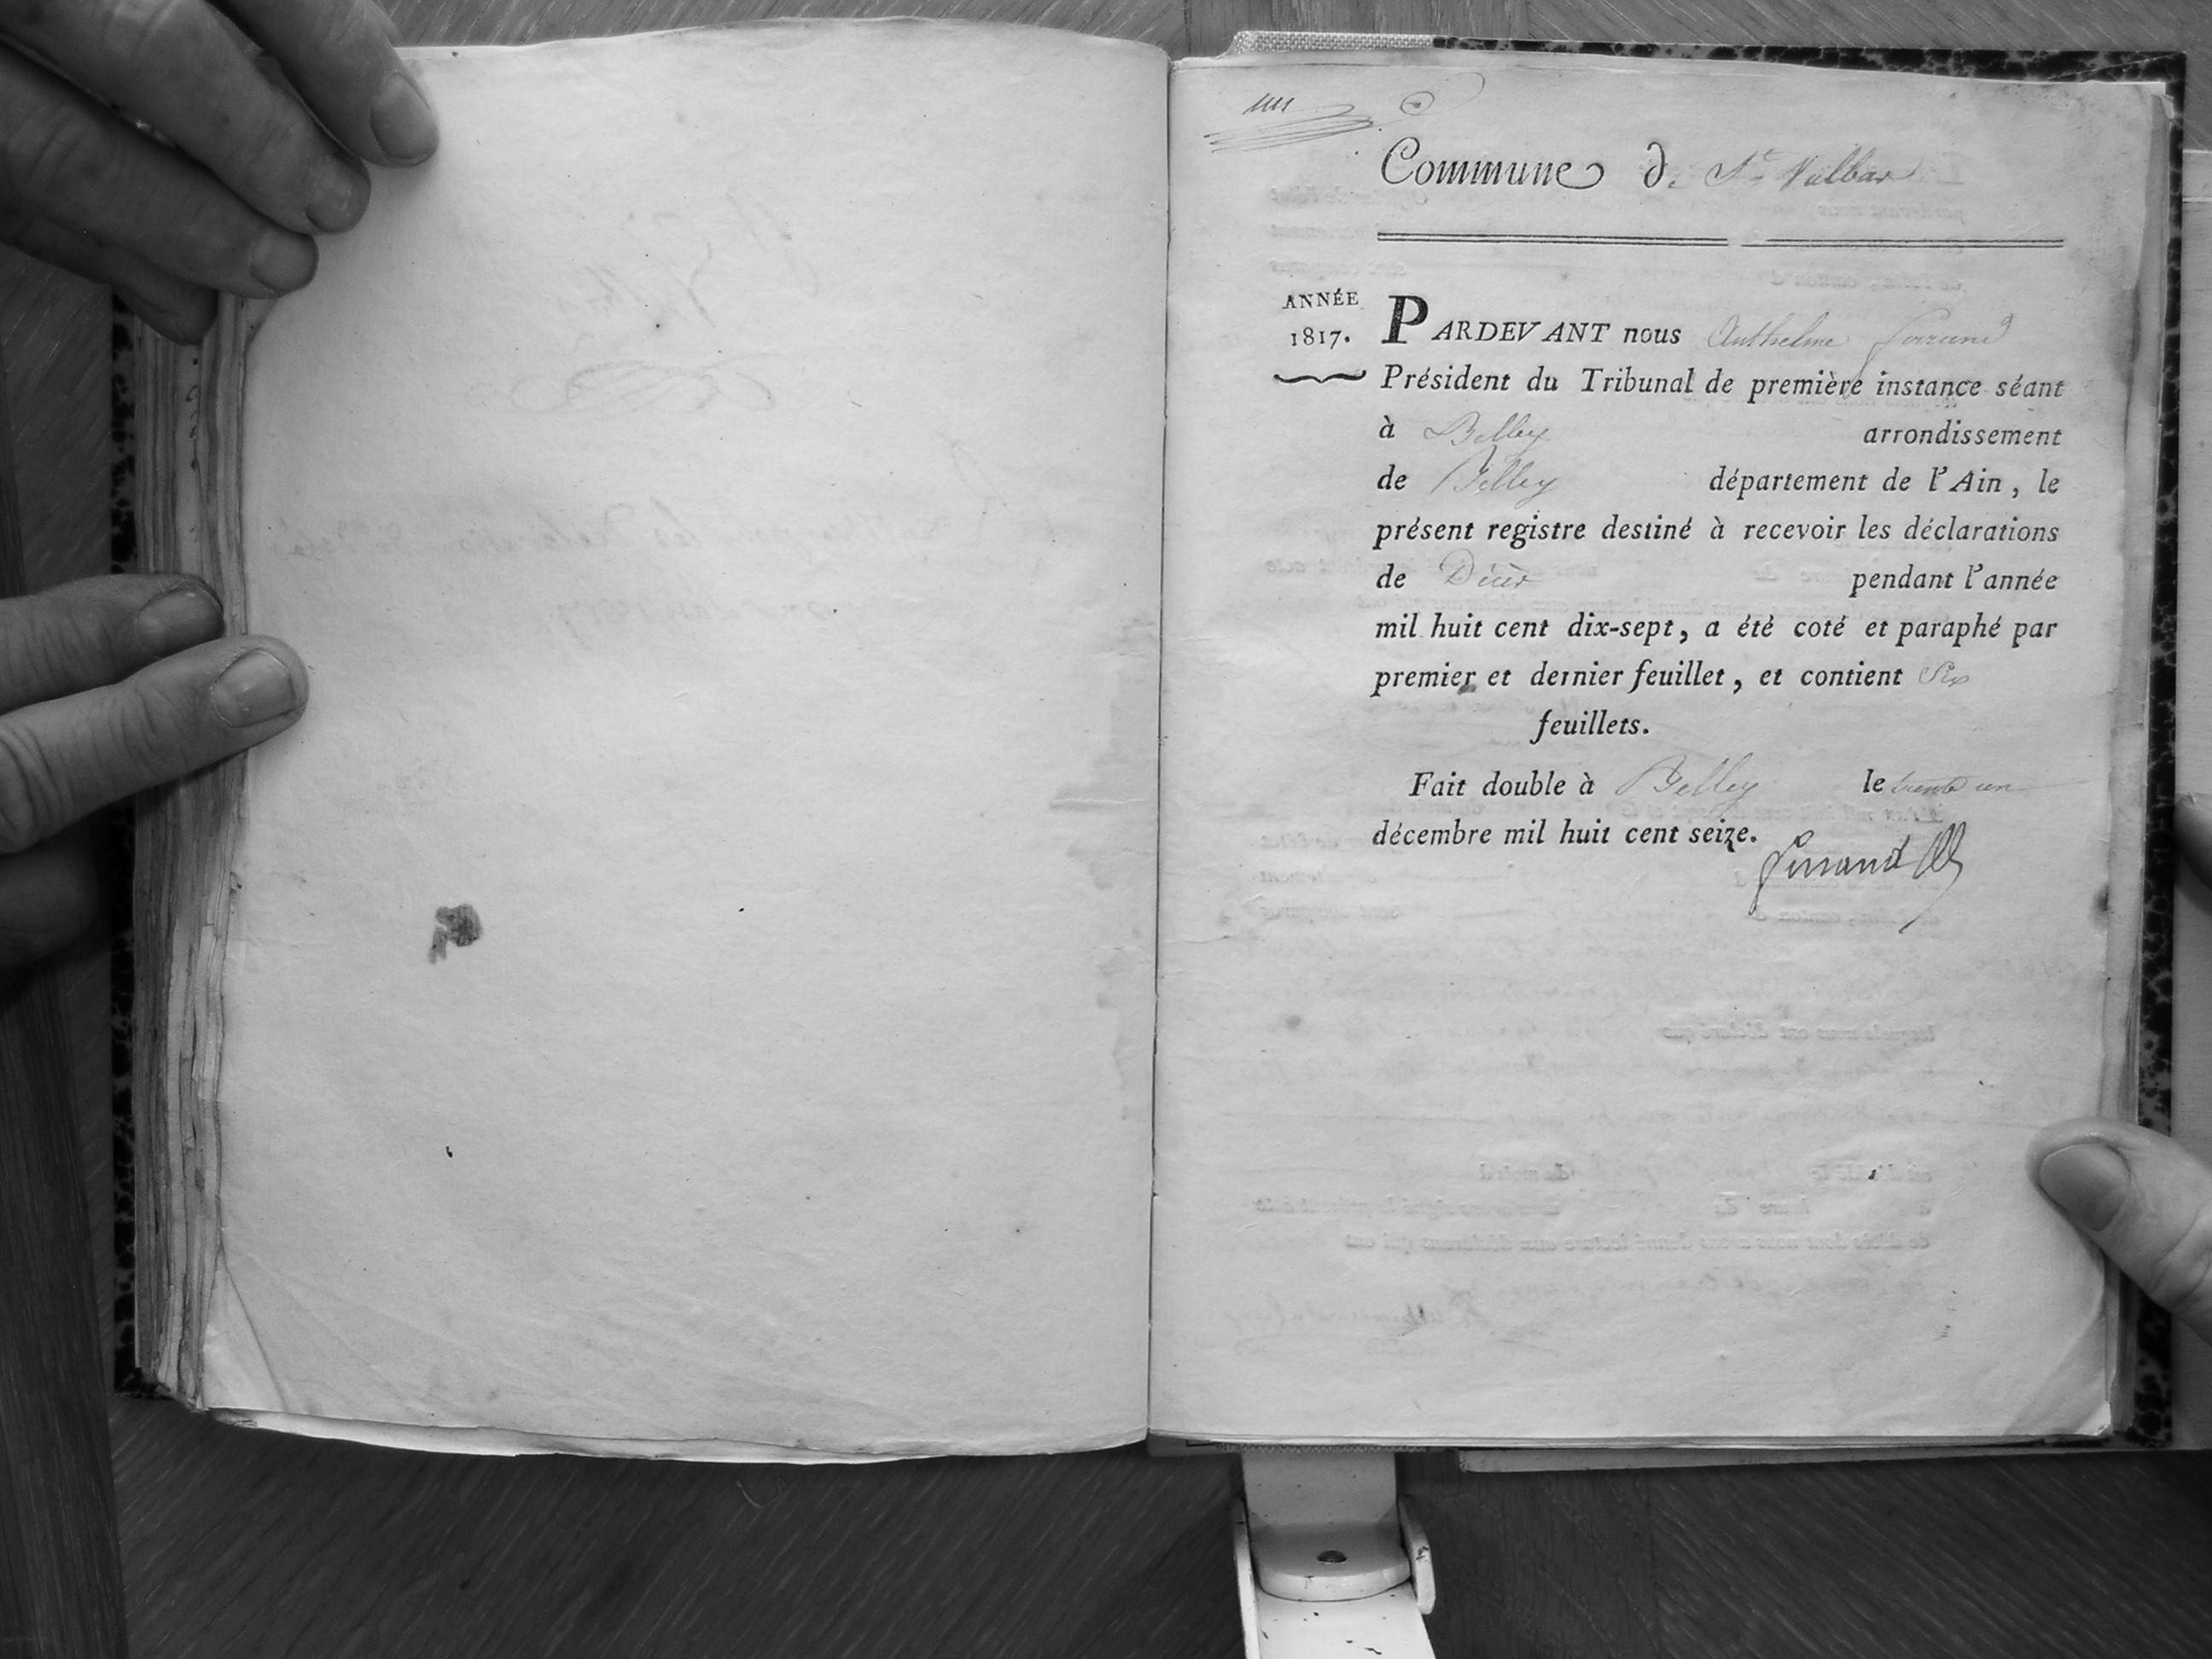 Commune de St Vulbas
ANNÉE
1817.
PARDEVANT nous Anthelme Ferrand
Président du Tribunal de première instance séant
à Belley arrondissement
de Belley département de l'Ain, le
présent registre destiné à recevoir les déclarations
de Décès pendant l'année
mil huit cent dix-sept, a été coté et paraphé par
premier et dernier feuillet, et contient Six
feuillets.
Fait double à Belley le trente un
décembre mil huit cent seize.
Ferrand